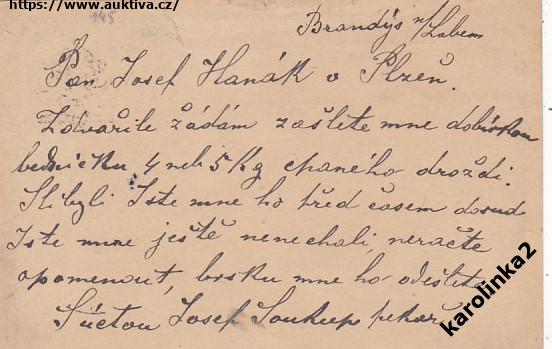 https://www.auktiva.cz/
145
Brandýs n/Labem
Pan Josef Hanák v Plzeň.
Zdvořile žádám zašlete mne dobírkou
bedničku 4 neb 5 Kg chaného droždí.
Slibyli Jste mne ho před časem dosud
Jste mne ještě nenechali, neračte
opomenout, brsku mne ho odešlete
Súctou Josef Soukup pekař
karolinka2